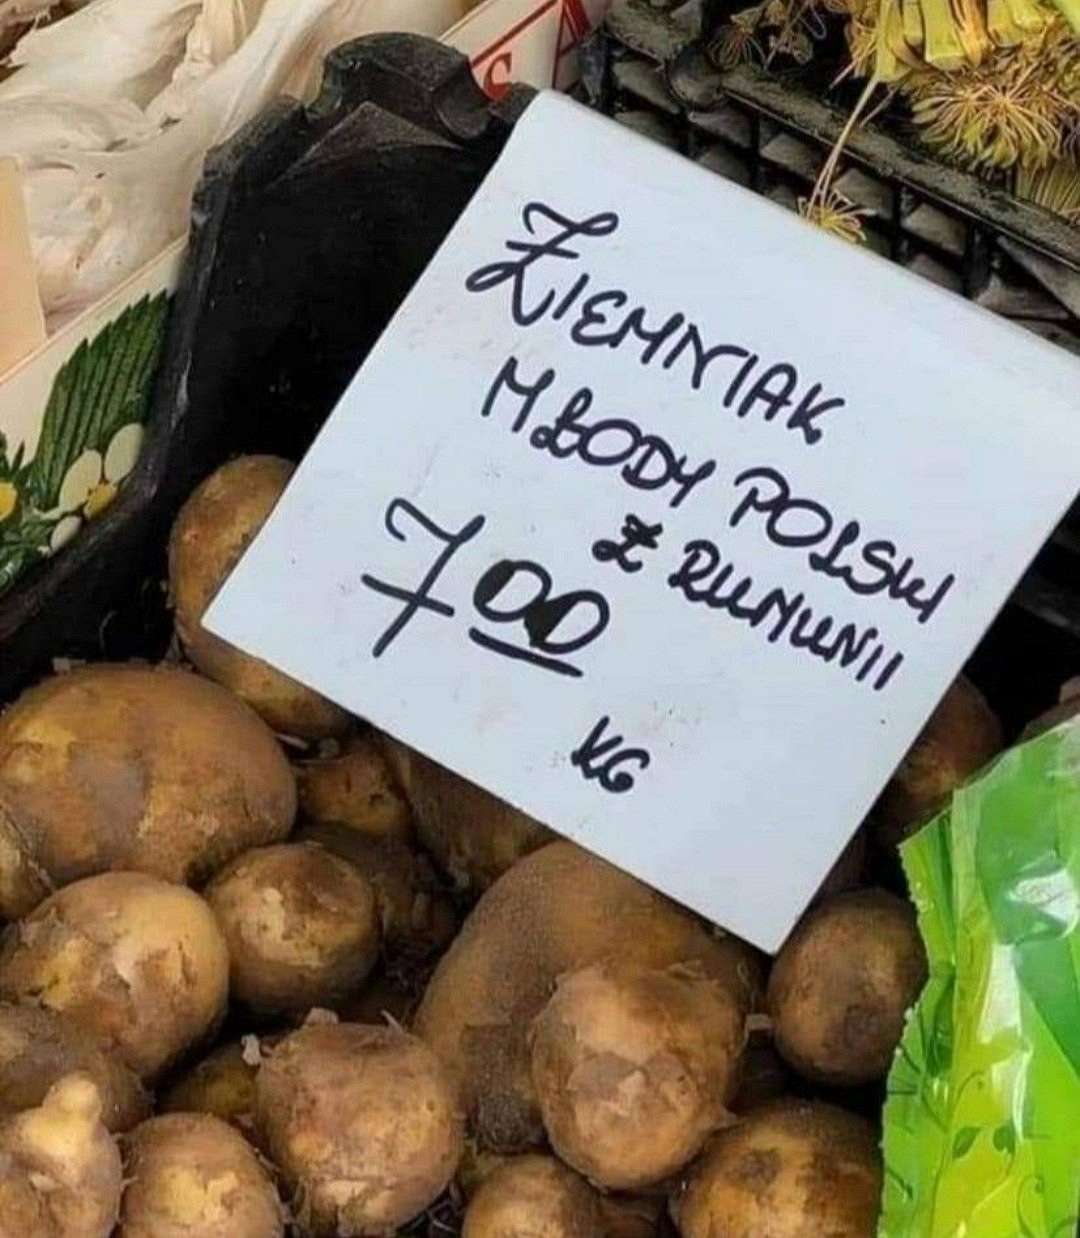 ZIEMNIAK
MŁODY POLSKI
Z RUMUNII
7 00
KG